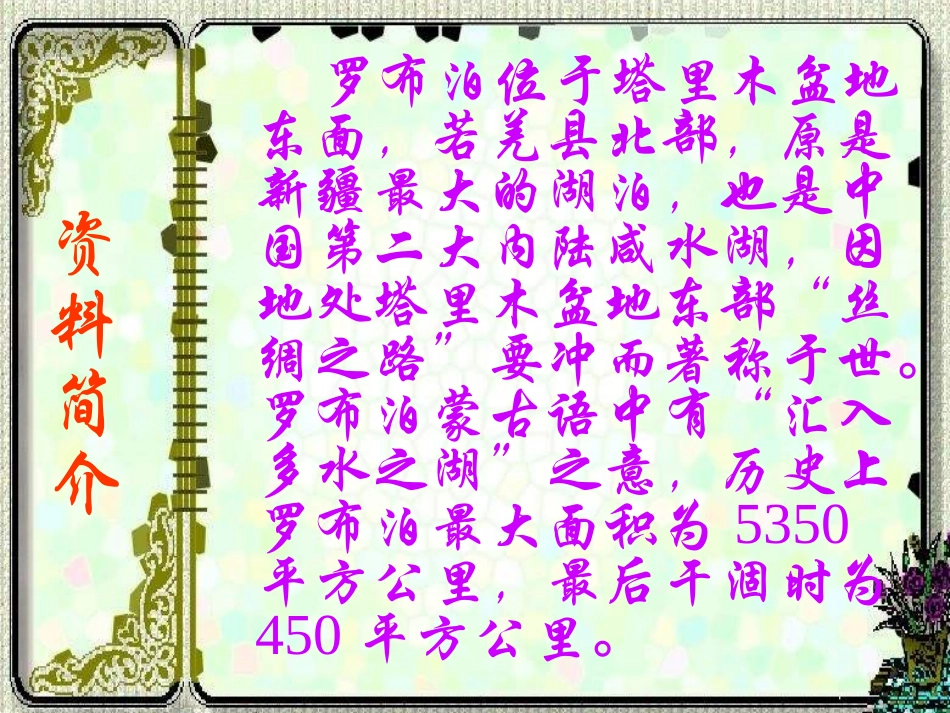 资料简介
罗布泊位于塔里木盆地
东面，若羌县北部，原是
新疆最大的湖泊，也是中
国第二大内陆咸水湖，因
地处塔里木盆地东部“丝
绸之路”要冲而著称于世。
罗布泊蒙古语中有“汇入
多水之湖”之意，历史上
罗布泊最大面积为 5350
平方公里，最后干涸时为
450 平方公里。